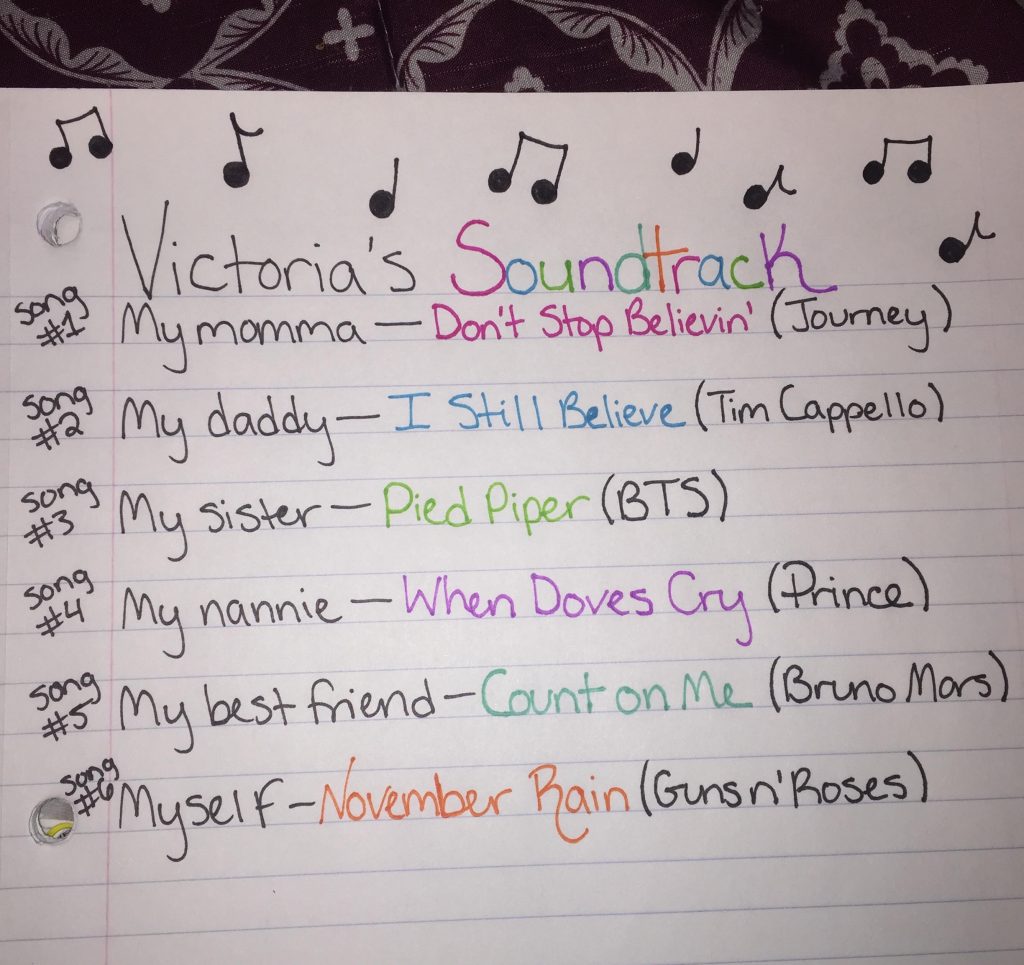 Victoria's Soundtrack
song #1 My momma — Don't Stop Believin' (Journey)
song #2 My daddy — I Still Believe (Tim Cappello)
song #3 My sister — Pied Piper (BTS)
song #4 My nannie — When Doves Cry (Prince)
song #5 My best friend — Count on Me (Bruno Mars)
song #6 Myself — November Rain (Guns n' Roses)